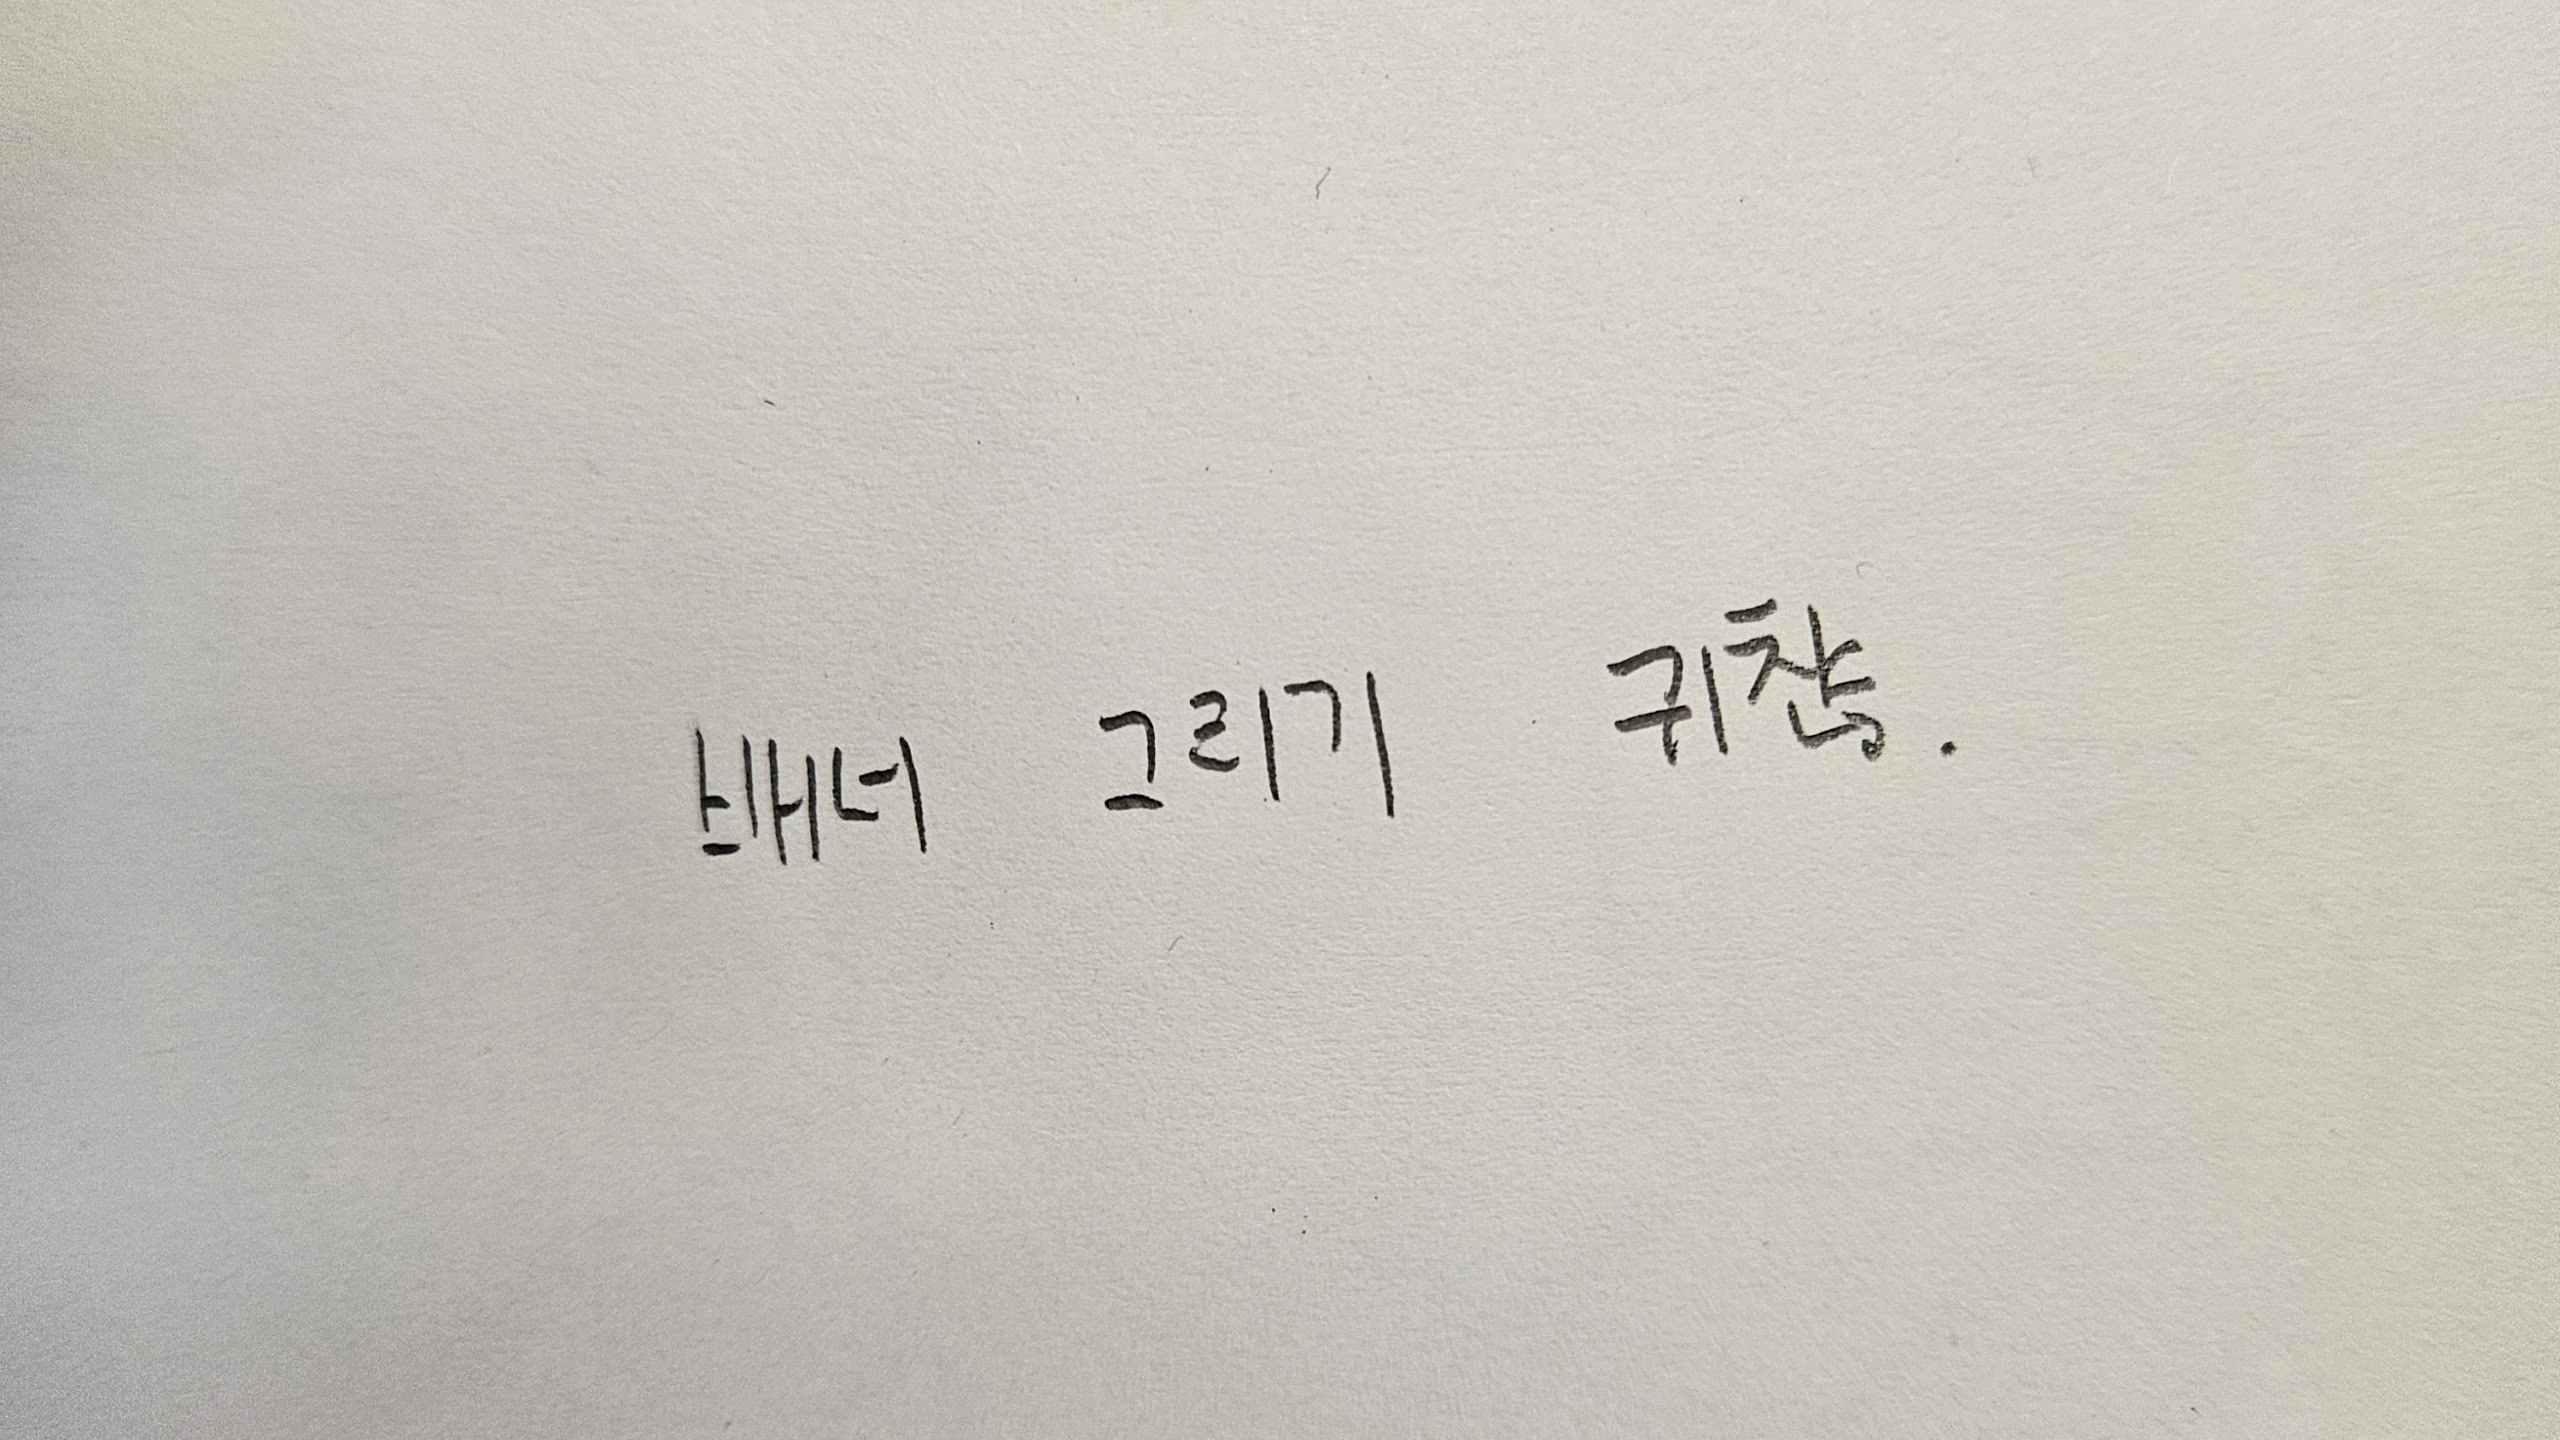 배너 그리기 귀찮.